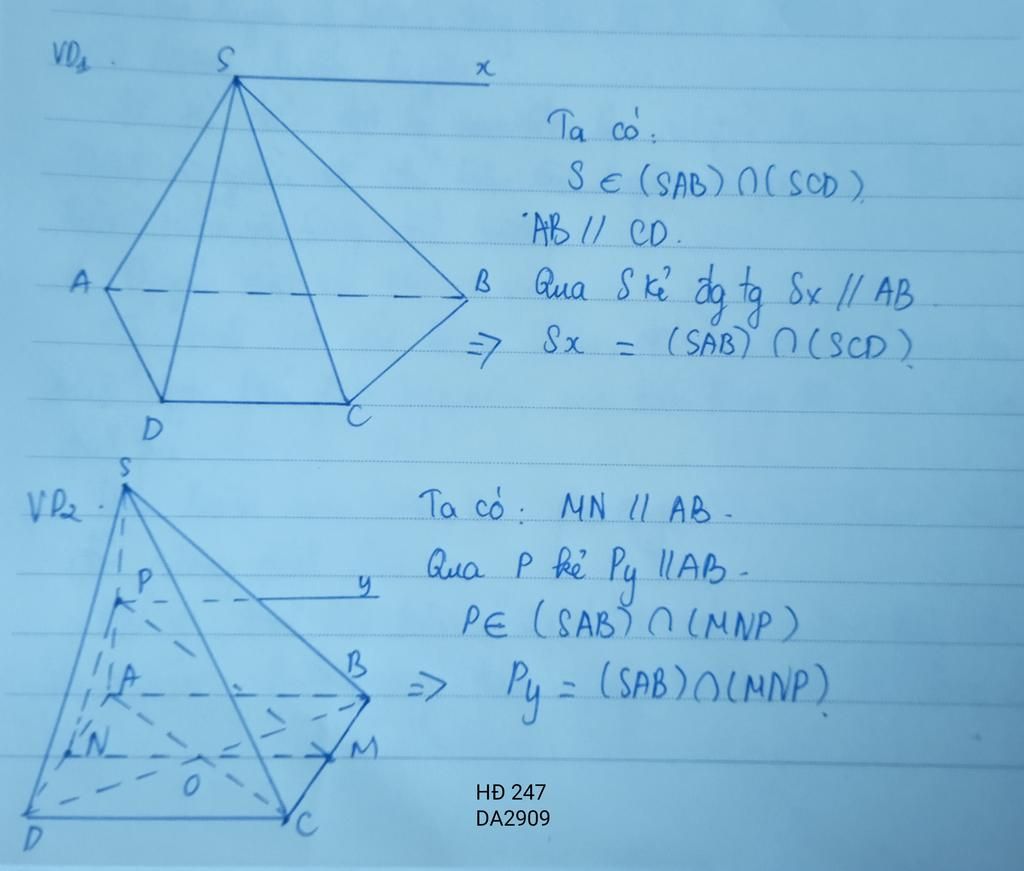 VD1.
S
x
Ta có:
S ∈ (SAB) ∩ (SCD).
AB // CD.
A
B
Qua S kẻ đg tg Sx // AB
=> Sx = (SAB) ∩ (SCD).
D
C
S
VD2.
Ta có: MN // AB.
Qua P kẻ Py // AB.
P
y
P ∈ (SAB) ∩ (MNP)
A
B
=> Py = (SAB) ∩ (MNP).
N
M
O
D
C
HĐ 247
DA2909